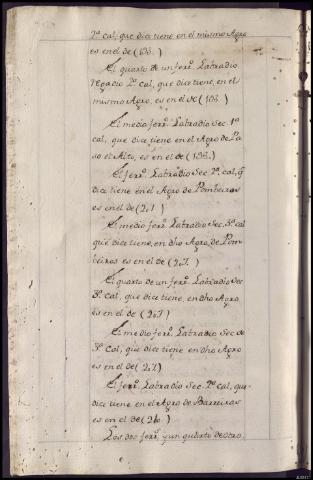 2ª cal, que dice tiene en el mismo Agro
es en el de (193.)
El quarto de un ferº Labradio
regadio 2ª cal, que dice tiene, en el
mismo Agro, es en el de (193.)
El medio ferº Labradio Sec. 1ª
cal, que dice tiene en el Agro de Pa
so el Alto, es en el de (193.)
El ferº Labradio Sec. 2ª cal, q̃
dice tiene en el Agro de Pombeiras
es en el de (207.)
El medio ferº Labradio Sec. 3ª cal
que dice tiene, en dho Agro de Pom
beiras es en el de (207.)
El quarto de un ferº Labradio Sec
3ª cal, que dice tiene, en dho Agro
es en el de (207)
El medio ferº Labradio Sec de
3ª cal, que dice tiene en dho Agro
es en el de (207)
El ferº Labradio Sec. 2ª cal, que
dice tiene en el Agro de Barreiras
es en el de (210)
Los dos ferº y un quarto de otro,